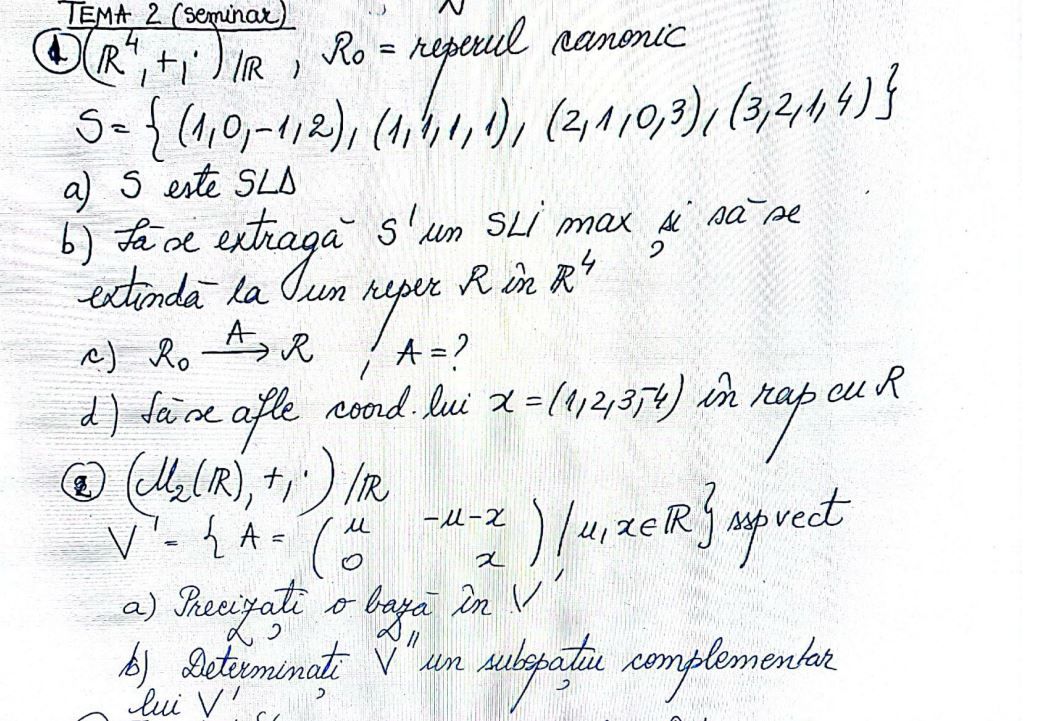 TEMA 2 (seminar)
① (ℝ⁴, +, ·)/ℝ , R₀ = reperul canonic
S = { (1,0,-1,2), (1,1,1,1), (2,1,0,3), (3,2,1,4) }
a) S este SLD
b) Să se extragă S' un SLI max și să se
extindă la un reper R în ℝ⁴
c) R₀ →ᴬ R , A = ?
d) Să se afle coord. lui x = (1,2,3,-4) în rap cu R
② (M₂(ℝ), +, ·)/ℝ
V' = { A = ( u -u-x ; 0 x ) / u, x ∈ ℝ } ssp vect
a) Precizați o bază în V'
b) Determinați V'' un subspațiu complementar
lui V'